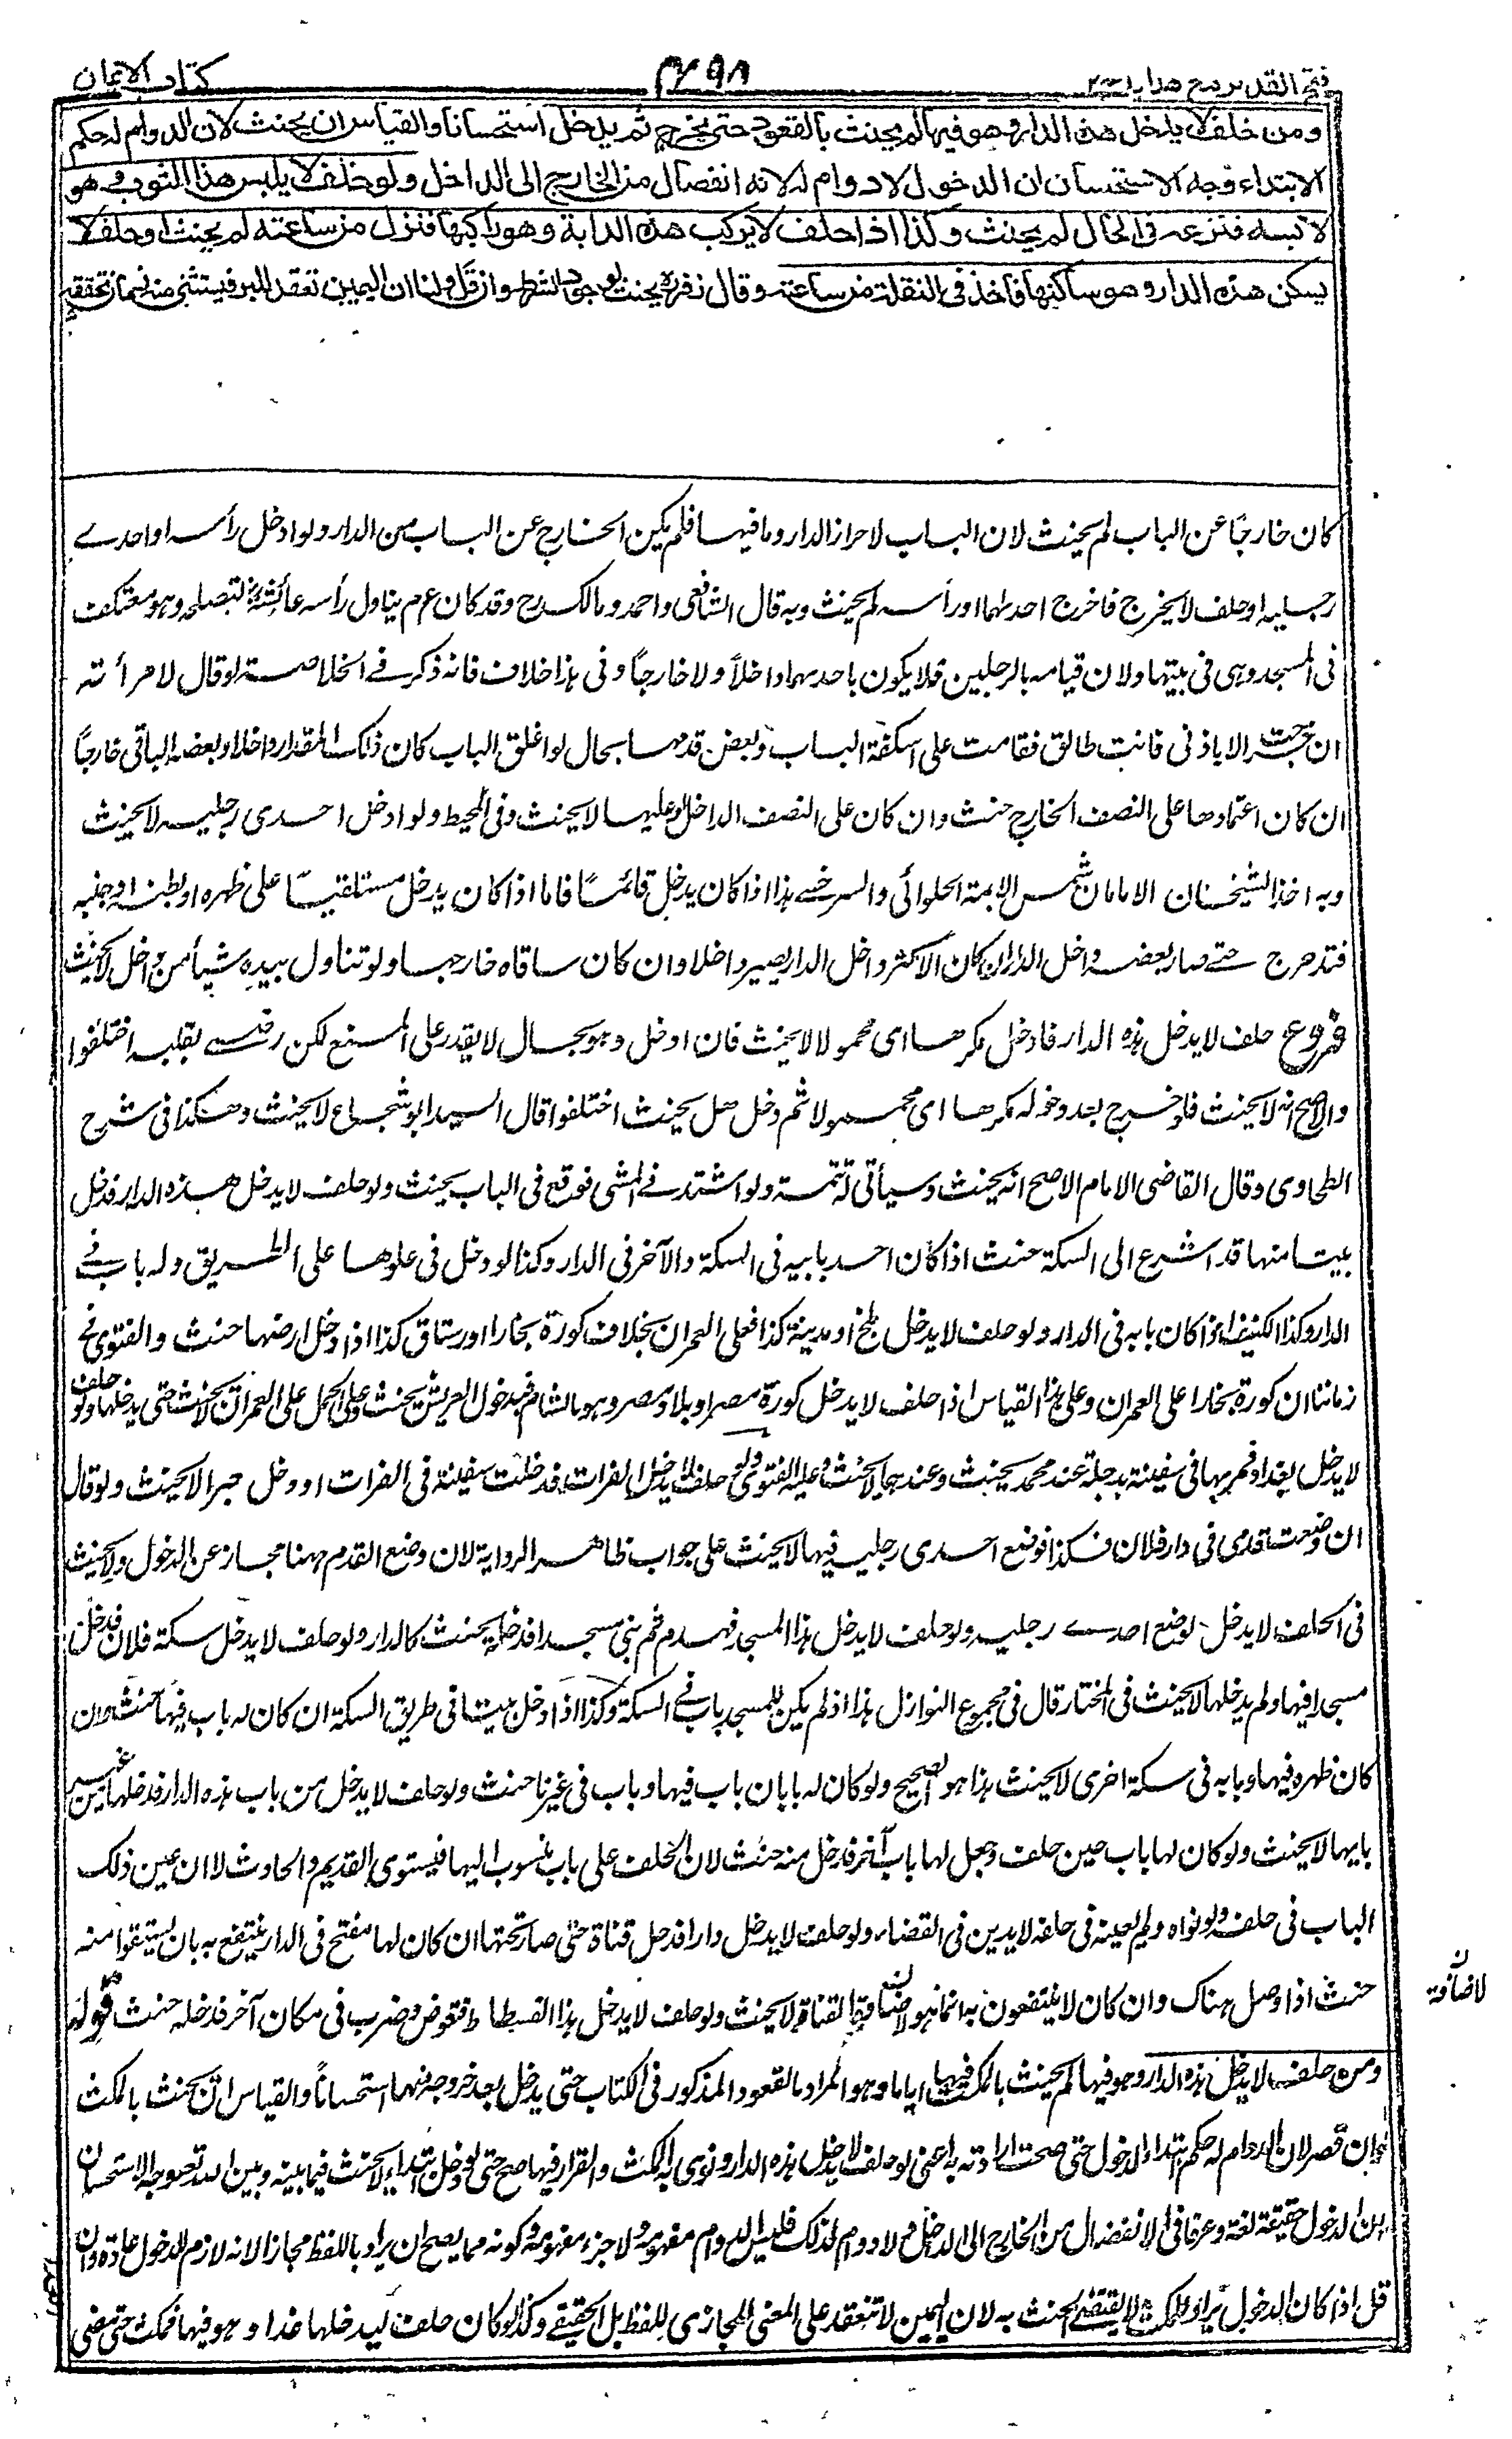 فتح القدير مع هدايه ج٢
٤٩٨
كتاب الايمان
ومن حلف لا يدخل هذه الدار وهو فيها لم يحنث بالقعود حتى يخرج ثم يدخل استحسانا والقياس ان يحنث لان الدوام له حكم
الابتداء وجه الاستحسان ان الدخول لا دوام له لانه انفصال من الخارج الى الداخل ولو حلف لا يلبس هذا الثوب وهو
لابسه فنزعه فى الحال لم يحنث وكذا اذا حلف لا يركب هذه الدابة وهو راكبها فنزل من ساعته لم يحنث او حلف لا
يسكن هذه الدار وهو ساكنها فاخذ فى النقلة من ساعته وقال زفر يحنث لوجود الشرط وان قل ولنا ان اليمين تعقد للبر فيستثنى منه زمان تحققه
كان خارجًا عن الباب لم يحنث لان الباب لاحراز الدار وما فيها فلم يكن الخارج عن الباب من الدار ولو ادخل رأسه او احدى
رجليه او حلف لا يخرج فاخرج احدهما او رأسه لم يحنث وبه قال الشافعى واحمد ومالك رح وقد كان عم يناول رأسه عائشة لتصلحه وهو معتكف
فى المسجد وهى فى بيتها ولان قيامه بالرجلين فلا يكون باحدهما داخلاً ولا خارجًا وفى هذا خلاف فانه ذكر فى الخلاصة لو قال لامرأته
ان خرجت الا باذنى فانت طالق فقامت على اسكفة الباب وبعض قدمها بحال لو اغلق الباب كان ذلك المقدار داخلا وبعضه الباقى خارجًا
ان كان اعتمادها على النصف الخارج حنث وان كان على النصف الداخل او عليهما لا يحنث وفى المحيط ولو ادخل احدى رجليه لا يحنث
وبه اخذ الشيخان الامامان شمس الائمة الحلوائى والسرخسى هذا اذا كان يدخل قائمًا فاما اذا كان يدخل مستلقيًا على ظهره او بطنه او جنبه
فتدحرج حتى صار بعضه داخل الدار ان كان الاكثر داخل الدار يصير داخلا وان كان ساقاه خارجها ولو تناول بيده شيأ من داخل لا يحنث
فروع حلف لا يدخل هذه الدار فادخل مكرها اى محمولا لا يحنث فان ادخل وهو بحال لا يقدر على المنع لكن رضى بقلبه اختلفوا
والاصح انه لا يحنث فلو خرج بعد دخوله مكرها اى محمولا ثم دخل هل يحنث اختلفوا قال السيد ابو شجاع لا يحنث وهكذا فى شرح
الطحاوى وقال القاضى الامام الاصح انه يحنث وسيأتى له تتمة ولو اشتد فى المشى فوقع فى الباب يحنث ولو حلف لا يدخل هذه الدار فدخل
بيتا منها قد اشرع الى السكة حنث اذا كان احد بابيه فى السكة والآخر فى الدار وكذا لو دخل فى علوها على الطريق وله باب فى
الدار وكذا الكنيف اذا كان بابه فى الدار ولو حلف لا يدخل بلخ او مدينة كذا فعلى العمران بخلاف كورة بخارا او رستاق كذا اذا دخل ارضها حنث والفتوى فى
زماننا ان كورة بخارا على العمران وعلى هذا القياس اذا حلف لا يدخل كورة مصر او بلاد مصر وهو بالشام فبدخول العريش يحنث وعلى الحمل على العمران لا يحنث حتى يدخلها ولو حلف
لا يدخل بغداد فمر بها فى سفينة بدجلة عند محمد يحنث وعندهما لا يحنث وعليه الفتوى ولو حلف لا يدخل الفرات فدخلت سفينة فى الفرات او دخل جسرا لا يحنث ولو قال
ان وضعت قدمى فى دار فلان فكذا فوضع احدى رجليه فيها لا يحنث على جواب ظاهر الرواية لان وضع القدم ههنا مجاز عن الدخول ولا يحنث
فى الحلف لا يدخل لوضع احدى رجليه ولو حلف لا يدخل هذا المسجد فهدم ثم بنى مسجدا فدخله يحنث كالدار ولو حلف لا يدخل سكة فلان فدخل
مسجدا فيها ولم يدخلها لا يحنث فى المختار قال فى مجموع النوازل هذا اذا لم يكن للمسجد باب فى السكة وكذا اذا دخل بيتا فى طريق السكة ان كان له باب فيها حنث وان
كان ظهره فيها وبابه فى سكة اخرى لا يحنث هذا هو الصحيح ولو كان له بابان باب فيها وباب فى غيرها حنث ولو حلف لا يدخل من باب هذه الدار فدخلها من غير
بابها لا يحنث ولو كان لها باب حين حلف وجعل لها باب آخر فدخل منه حنث لان الحلف على باب منسوب اليها فيستوى القديم والحادث الا ان عين ذلك
الباب فى حلفه ولو نواه ولم يعينه فى حلفه لا يدين فى القضاء ولو حلف لا يدخل دارا فدخل قناة حتى صار تحتها ان كان لها مفتح فى الدار ينتفع به بان يستقوا منه
حنث اذا وصل هناك وان كان لا ينتفعون به انما هو لاضاءة القناة لا يحنث ولو حلف لا يدخل هذا الفسطاط فتقوض وضرب فى مكان آخر فدخله حنث قوله
ومن حلف لا يدخل هذه الدار وهو فيها لم يحنث بالمكث فيها اياما وهو المراد بالقعود المذكور فى الكتاب حتى يدخل بعد خروجه منها استحسانًا والقياس ان يحنث بالمكث
وان قصر لان الدوام له حكم ابتداء الدخول حتى صحت ارادته به اعنى لو حلف لا يدخل هذه الدار ونوى به المكث والقرار فيها صح حتى لو دخل ابتداء لا يحنث فيما بينه وبين الله تعالى وجه الاستحسان
ان الدخول حقيقة لغة وعرفا فى الانفصال من الخارج الى الداخل ولا دوام لذلك فليس الدوام مفهومه ولا جزء مفهومه وكونه مما يصح ان يراد باللفظ مجازا لانه لازم الدخول عادة وان
قل اذا كان الدخول يراد للمكث لا يقتضى الحنث به لان اليمين لا تنعقد على المعنى المجازى للفظ بل الحقيقى وكذا لو كان حلف ليدخلها غدا وهو فيها فمكث حتى مضى